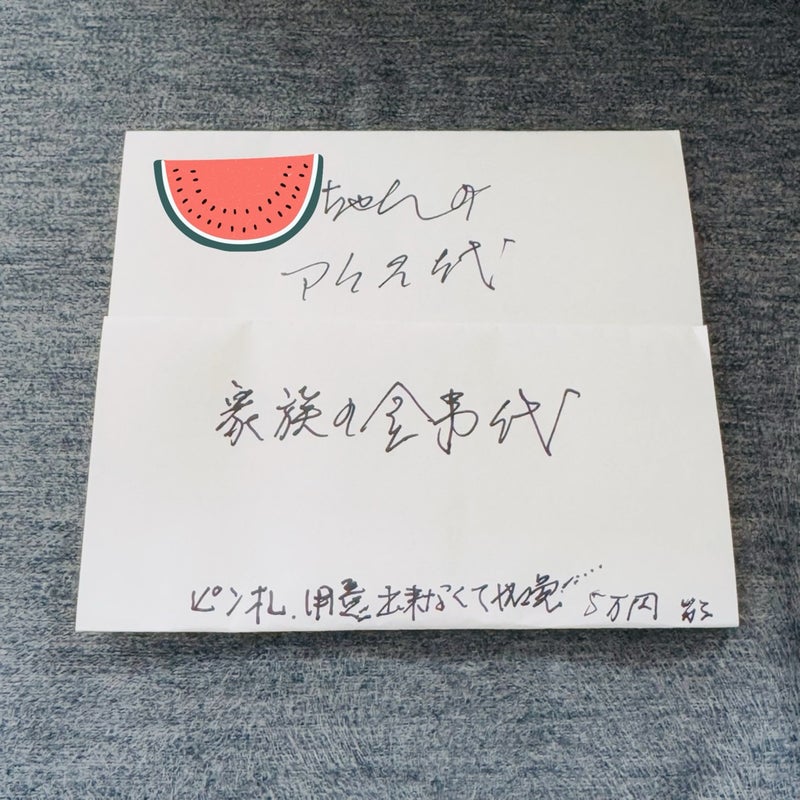 ちゃんの
アイス代
家族の食事代
ピン札、用意出来なくて ‥‥ 5万円